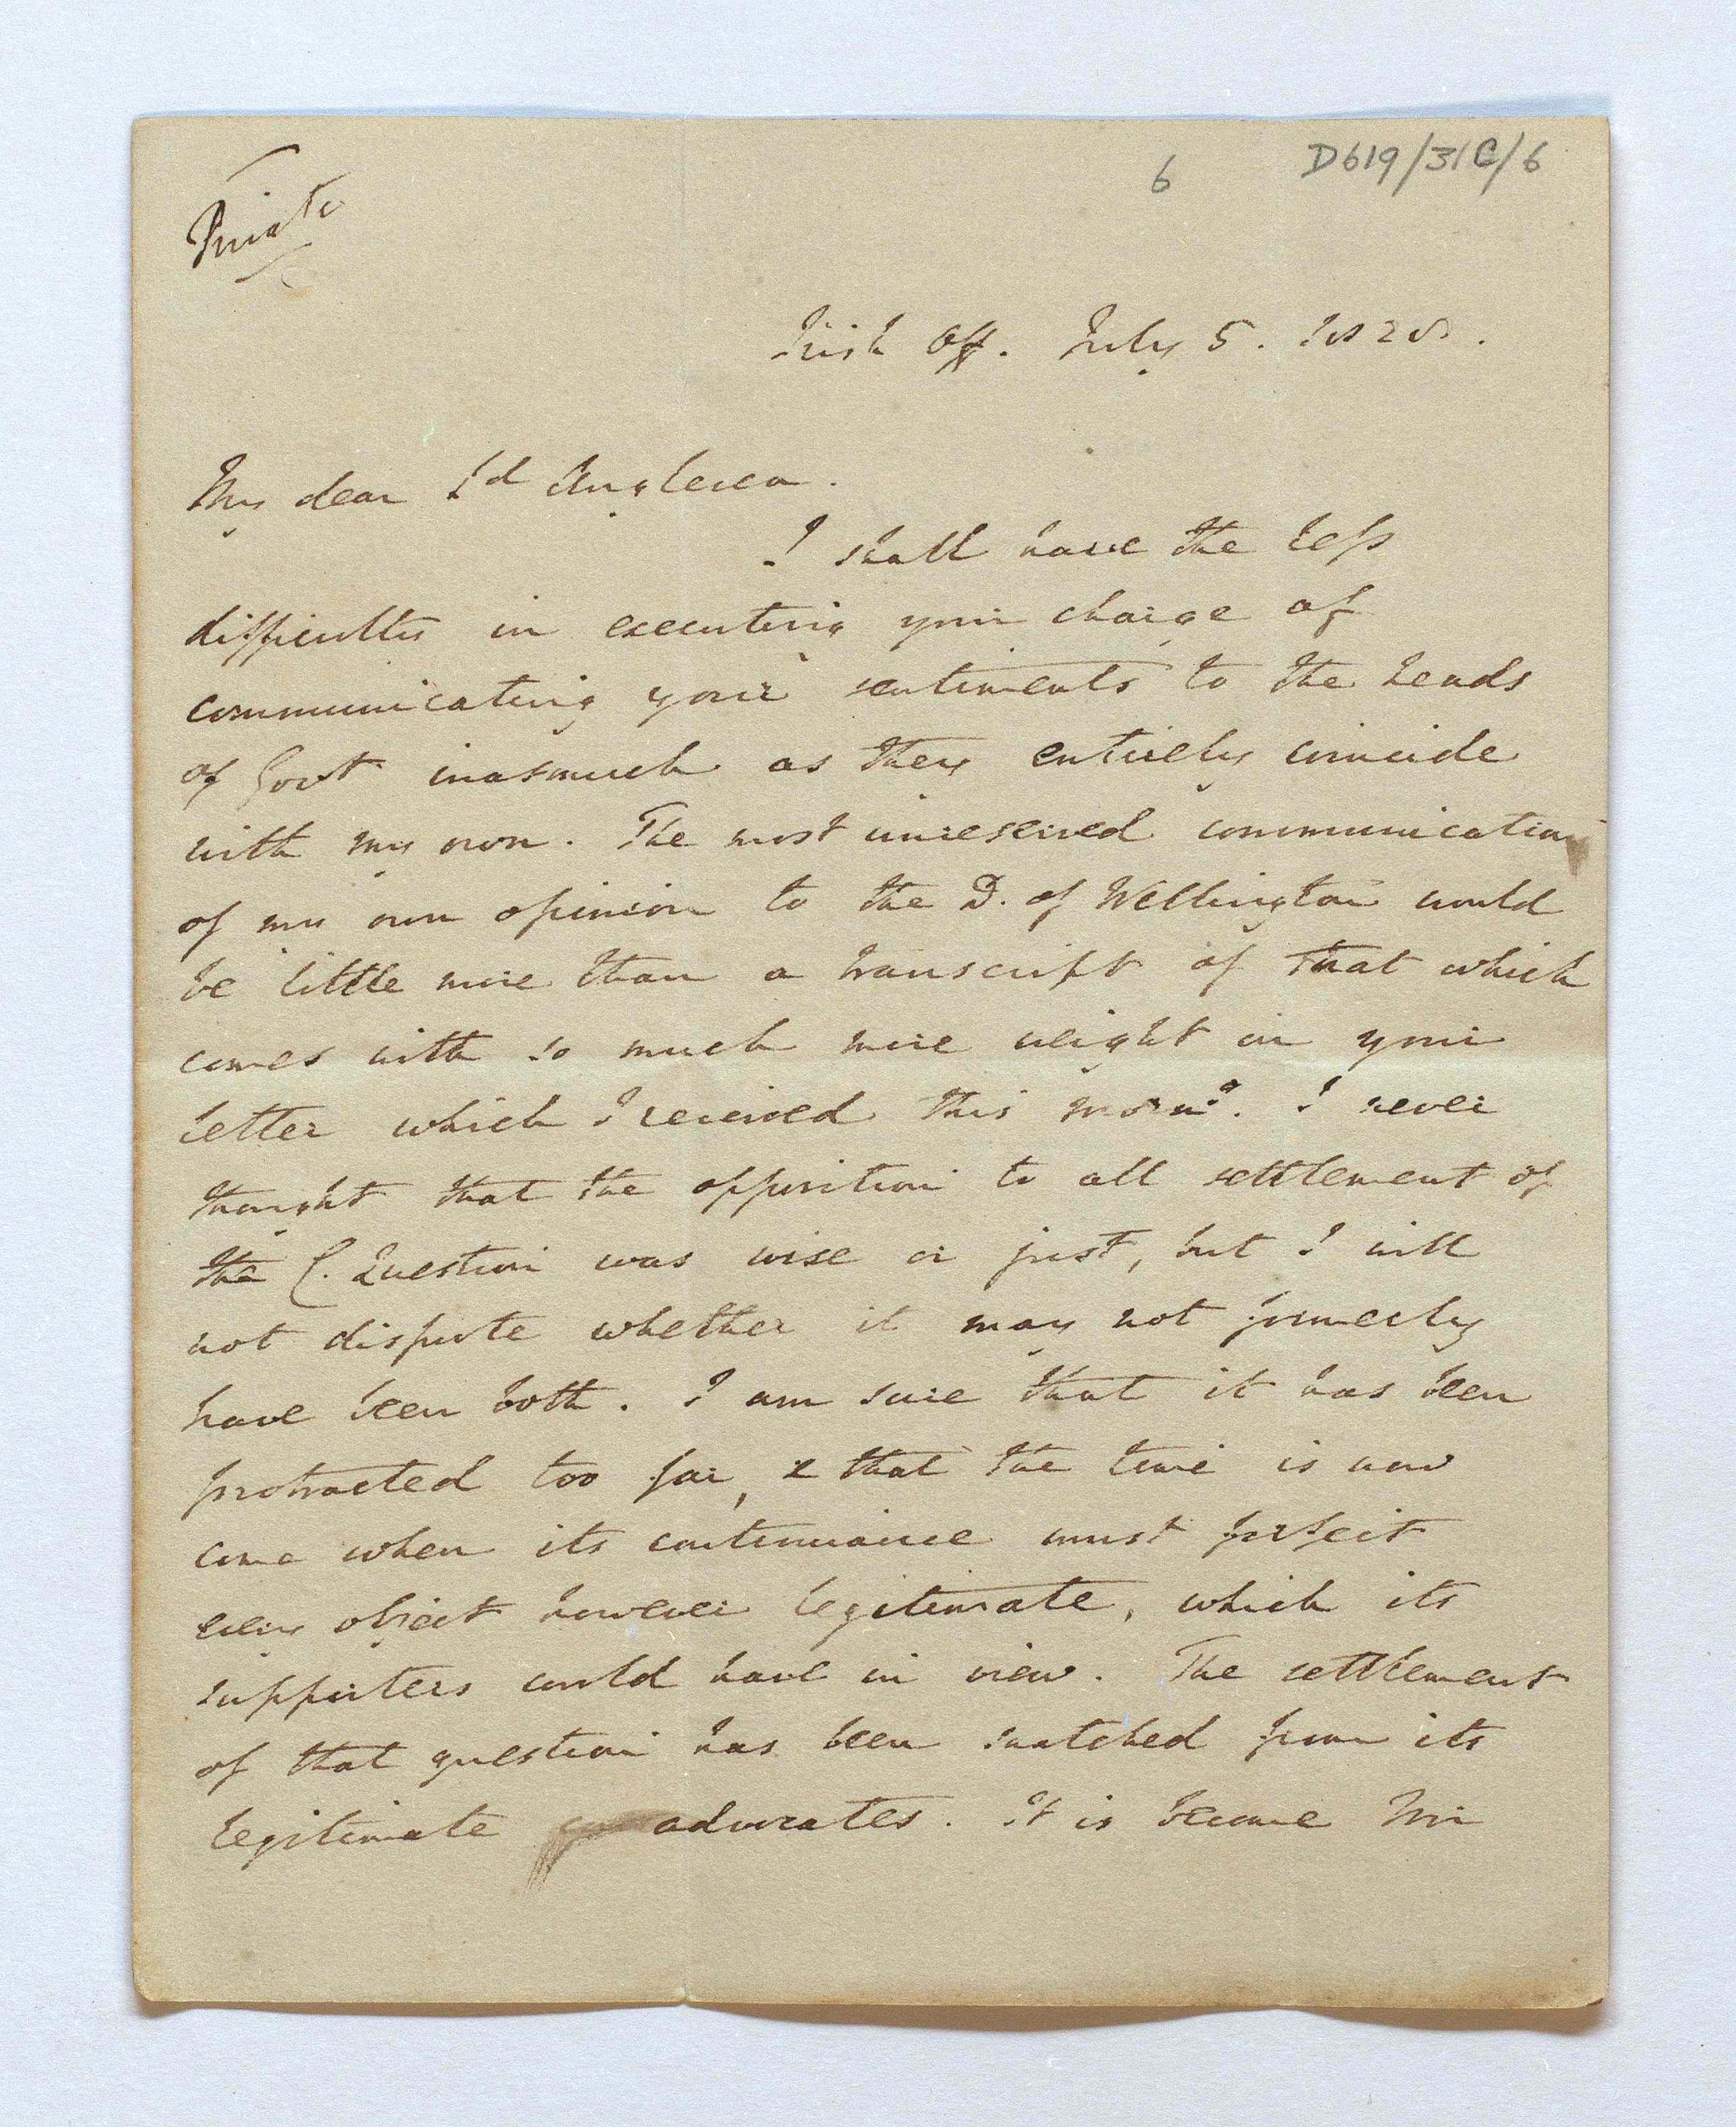 6
D619/31C/6
Private
Irish Off. July 5. 1828.
My dear Ld Anglesea.
I shall have the less
difficulty in executing your charge of
communicating your sentiments to the heads
of Govt inasmuch as they entirely coincide
with my own. The most unreserved communication
of my own opinion to the D. of Wellington would
be little more than a transcript of that which
comes with so much more weight in your
letter which I received this morng. I never
thought that the opposition to all settlement of
the C. Question was wise or just, but I will
not dispute whether it may not formerly
have been both. I am sure that it has been
protracted too far, & that the time is now
come when its continuance must forfeit
every object however legitimate, which its
supporters could have in view. The settlement
of that question has been snatched from its
legitimate advocates. It is become